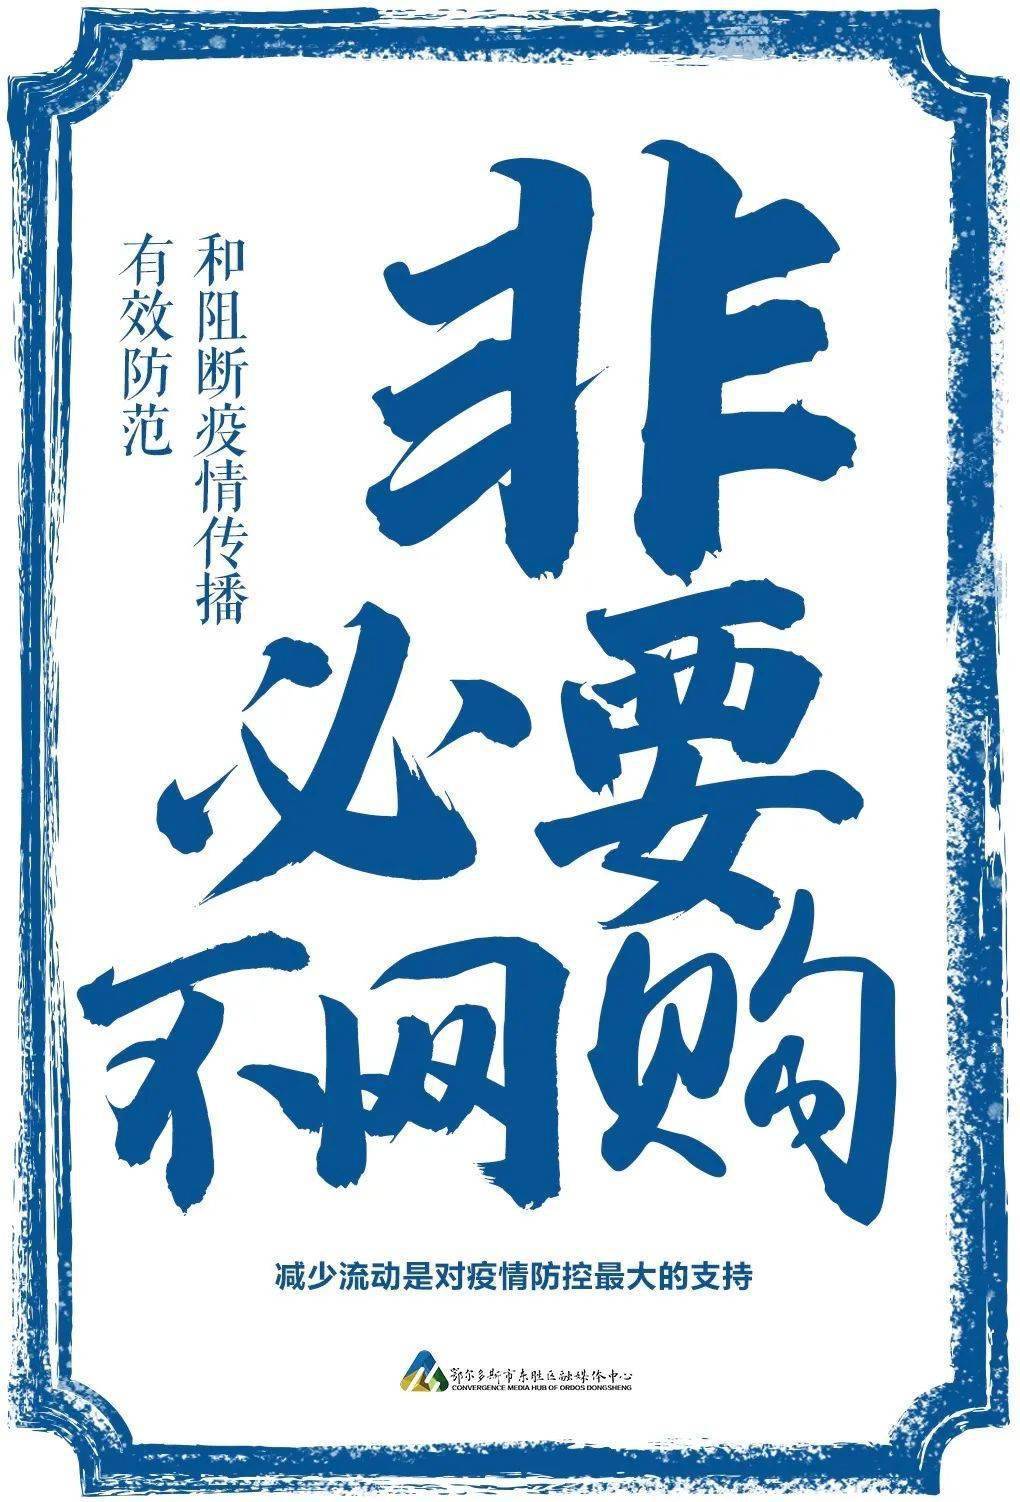 有效防范
和阻断疫情传播
非
必要
不网购
减少流动是对疫情防控最大的支持
鄂尔多斯市东胜区融媒体中心
CONVERGENCE MEDIA HUB OF ORDOS DONGSHENG